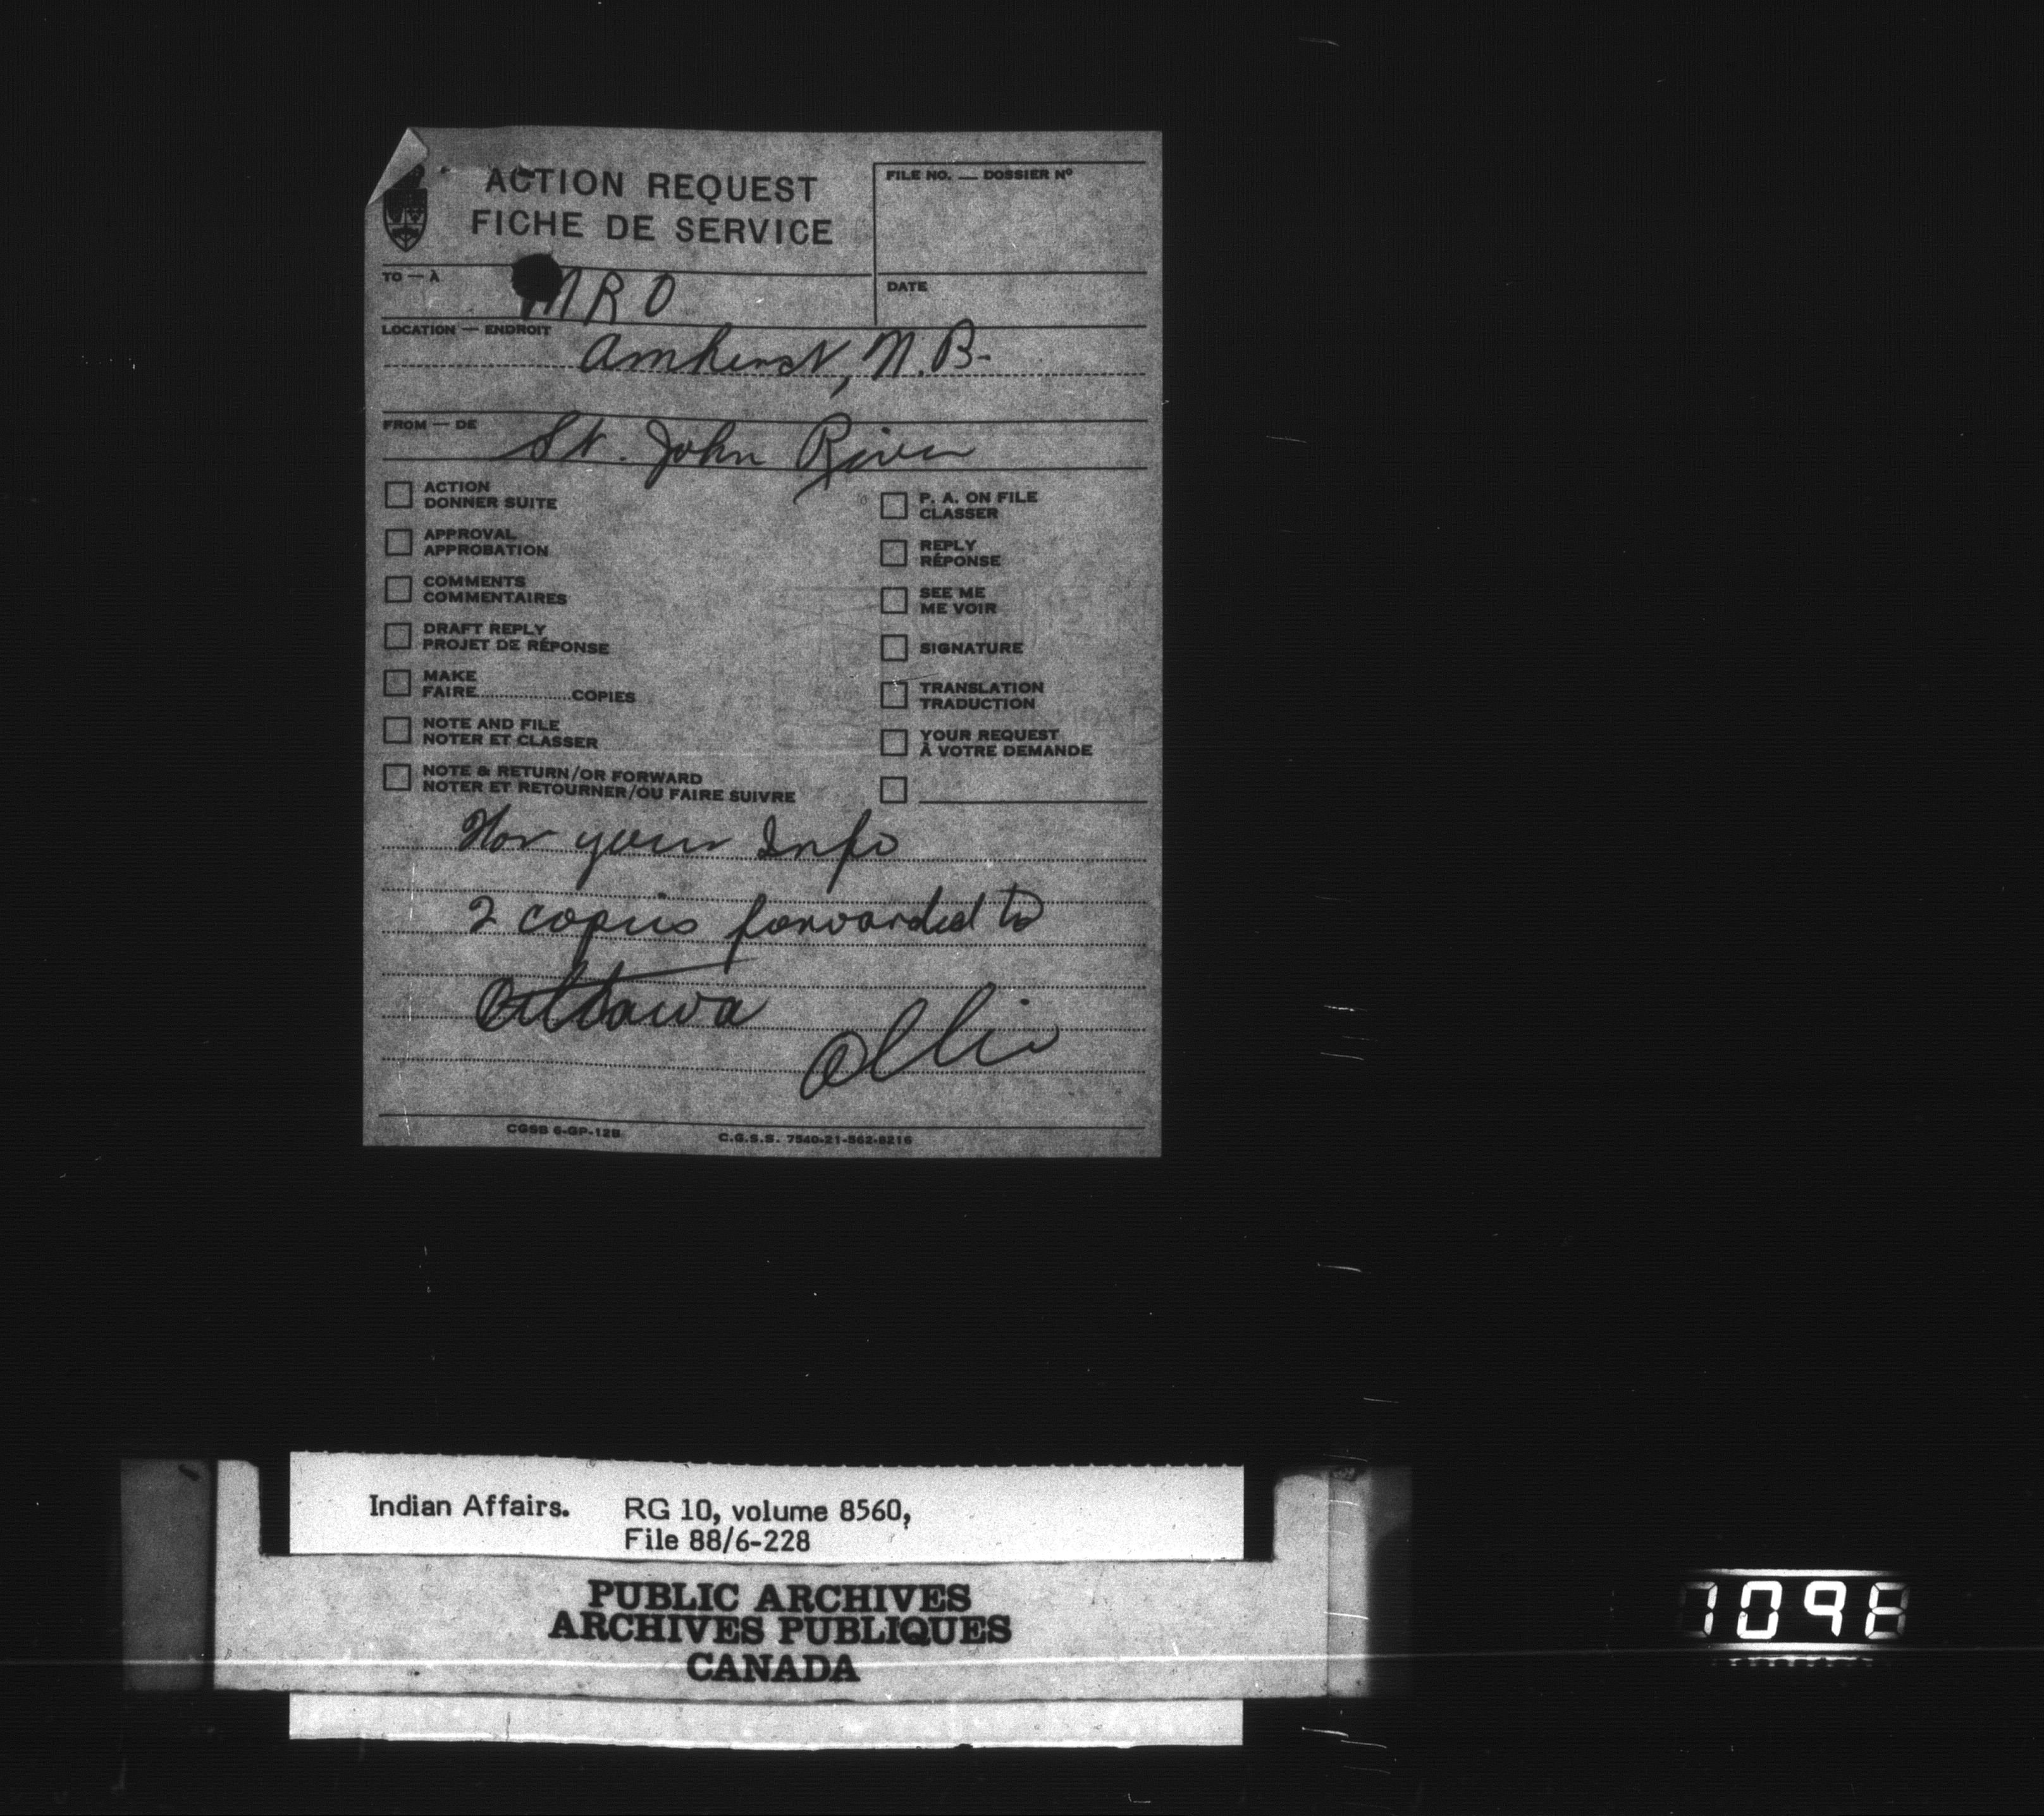 ACTION REQUEST
FICHE DE SERVICE
FILE NO. — DOSSIER Nº
TO — À MRO
DATE
LOCATION — ENDROIT
Amherst, N.B.
FROM — DE St. John River
ACTION
DONNER SUITE
APPROVAL
APPROBATION
COMMENTS
COMMENTAIRES
DRAFT REPLY
PROJET DE RÉPONSE
MAKE
FAIRE..................COPIES
NOTE AND FILE
NOTER ET CLASSER
NOTE & RETURN/OR FORWARD
NOTER ET RETOURNER/OU FAIRE SUIVRE
P. A. ON FILE
CLASSER
REPLY
RÉPONSE
SEE ME
ME VOIR
SIGNATURE
TRANSLATION
TRADUCTION
YOUR REQUEST
À VOTRE DEMANDE
For your Info
2 copies forwarded to
Ottawa
Ollie
CGSB 6-GP-12B C.G.S.S. 7540-21-562-8216
Indian Affairs. RG 10, volume 8560,
File 88/6-228
PUBLIC ARCHIVES
ARCHIVES PUBLIQUES
CANADA